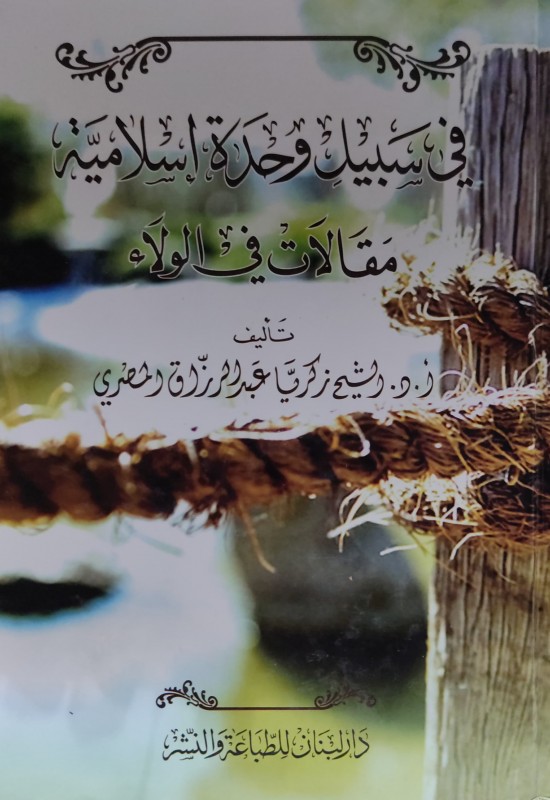 في سَبيلِ وحْدَة إسْلاميَّة
مَقَالَات في الولَاء
تَأليف
أ. د. الشيخ زكريَّا عَبد الرزَّاق المصري
دَار لبنَان للطّبَاعَة وَالنّشْر